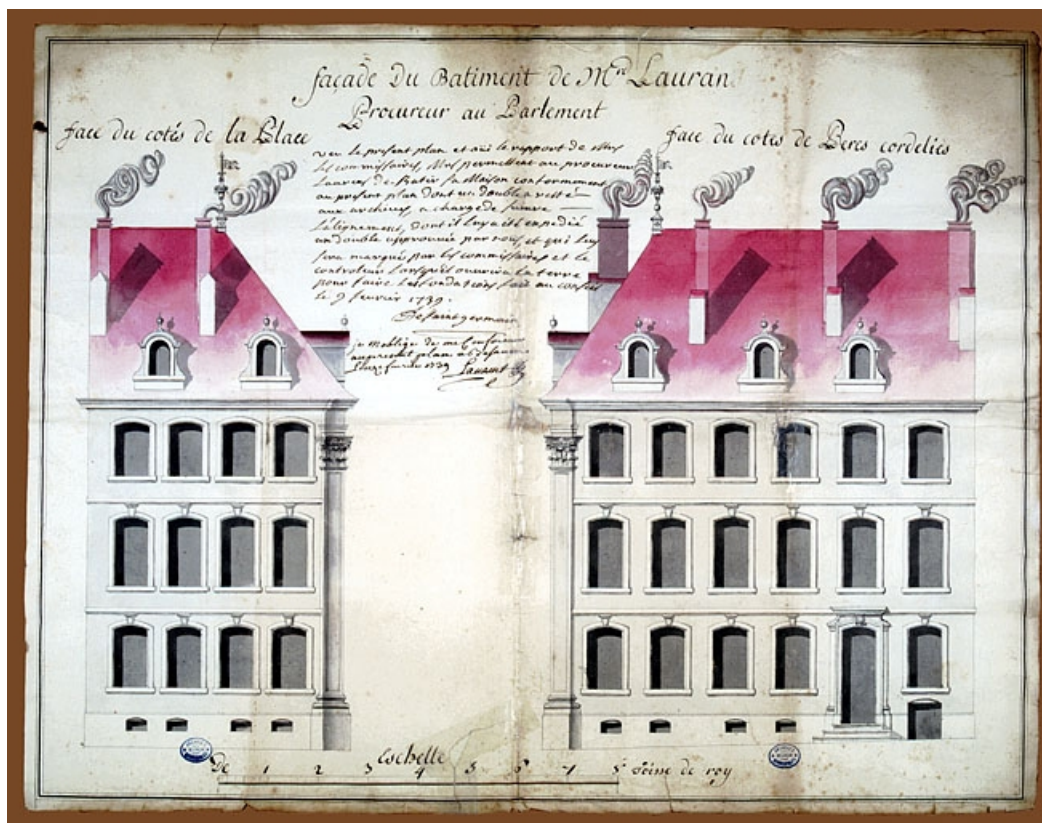 façade Du Batiment de Mr Lauran
Procureur au Parlement
face du cotés de la Place
face du cotes de Peres cordeliés
veu le present plan et oüi le rapport de Mrs
les commissaires, Mrs permettent au procureur
Laurent de Batir sa Maison conformement
au present plan dont un double a resté
aux archives, a charge de suivre
L'alignement, dont il luy a été expedié
un double approuvée par nous, et qui luy
sera marqué par les commissaires et le
controleur Lorsqu'il ouvrira la terre
pour faire les fondations fait au conseil
le 9 fevrier 1739.
De Saint germain
je m'oblige de me Conformer
au present plan a
fevrier 1739 Laurent
Eschelle
De 1 2 3 4 5 6 7 8 Toise de roy